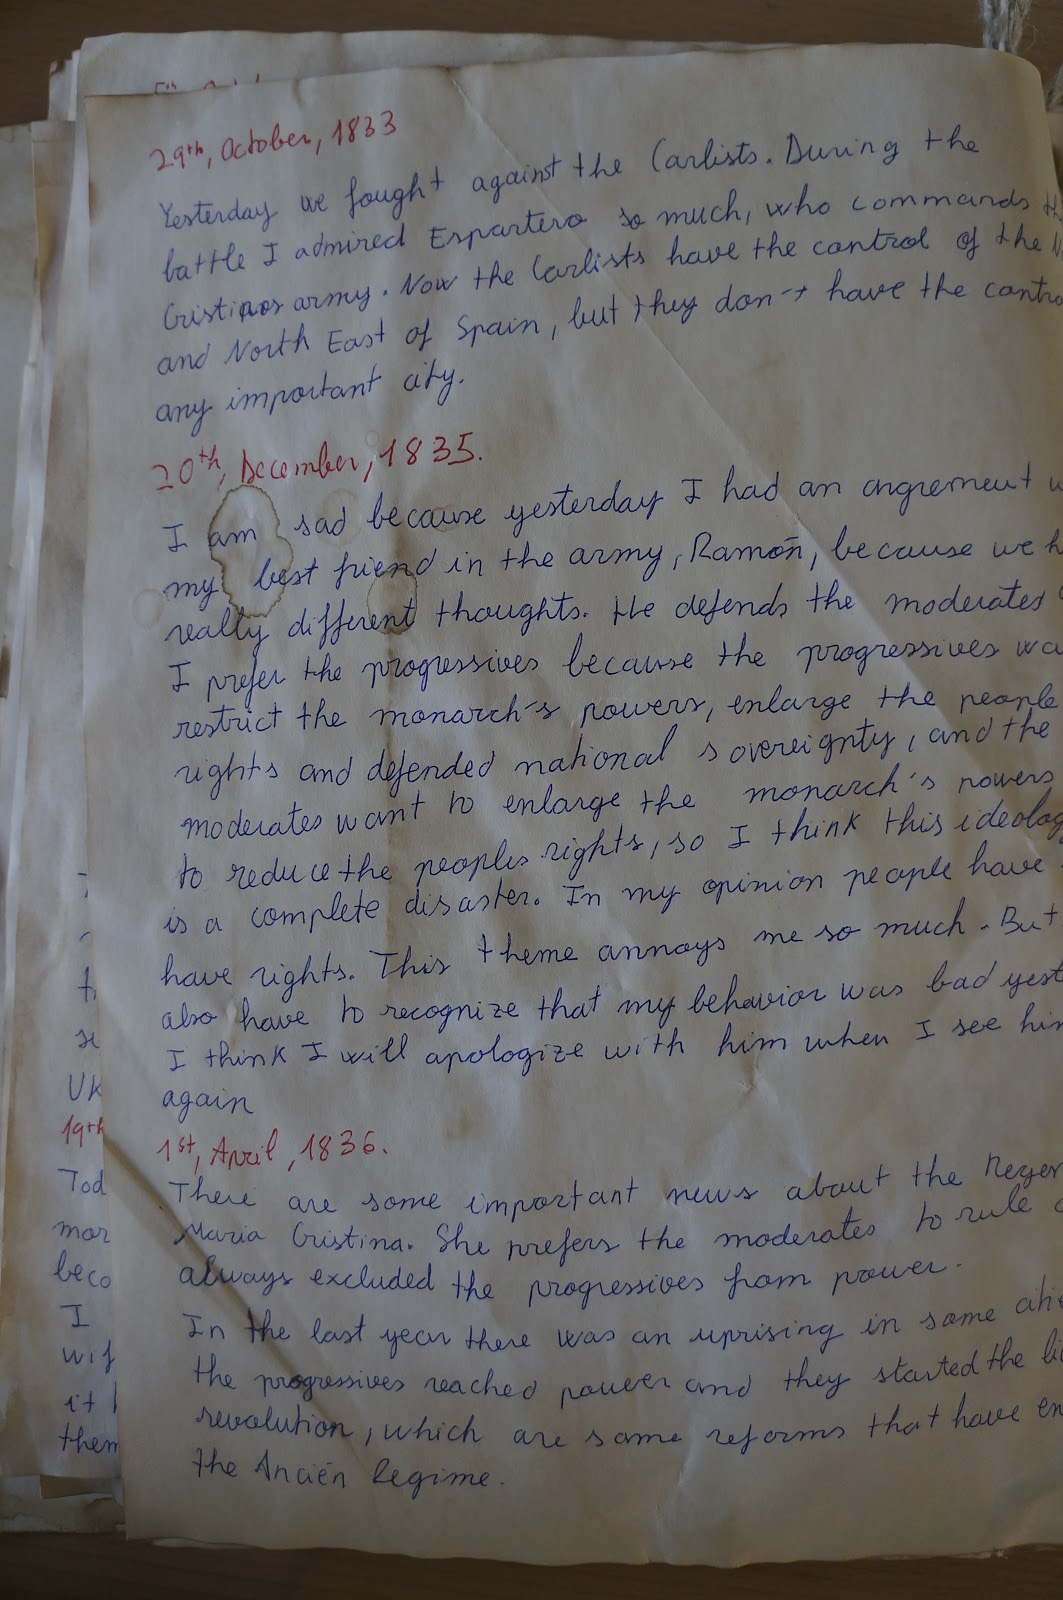 29th, October, 1833
Yesterday we fought against the Carlists. During the
battle I admired Espartero so much, who commands
Cristinos army. Now the Carlists have the control of the
and North East of Spain, but they don't have the
any important city.
20th, December, 1835.
I am sad because yesterday I had an angrement
my best friend in the army, Ramón, because we
really different thoughts. He defends the moderates
I prefer the progressives because the progressives
restrict the monarch's powers, enlarge the people
rights and defended national sovereignty, and the
moderates want to enlarge the monarch's powers
to reduce the peoples rights, so I think this
is a complete disaster. In my opinion people have
have rights. This theme annoys me so much. But
also have to recognize that my behavior was bad
I think I will apologize with him when I see
again
1st, April, 1836.
There are some important news about the
Maria Cristina. She prefers the moderates to rule
always excluded the progressives from power.
In the last year there was an uprising in some
the progressives reached power and they started the
revolution, which are some reforms that have
the Ancien Regime.
UK
19th